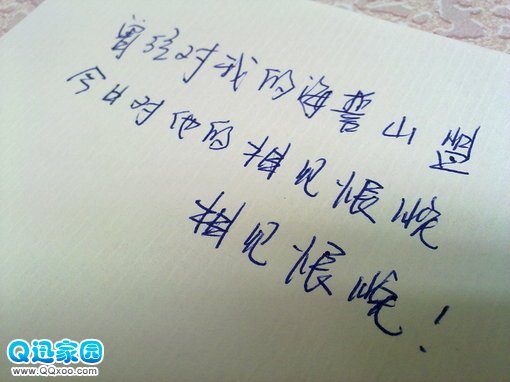 曾经对我的海誓山盟
今日对他的相见恨晚
相见恨晚！
Q迅家园
www.QQxoo.com